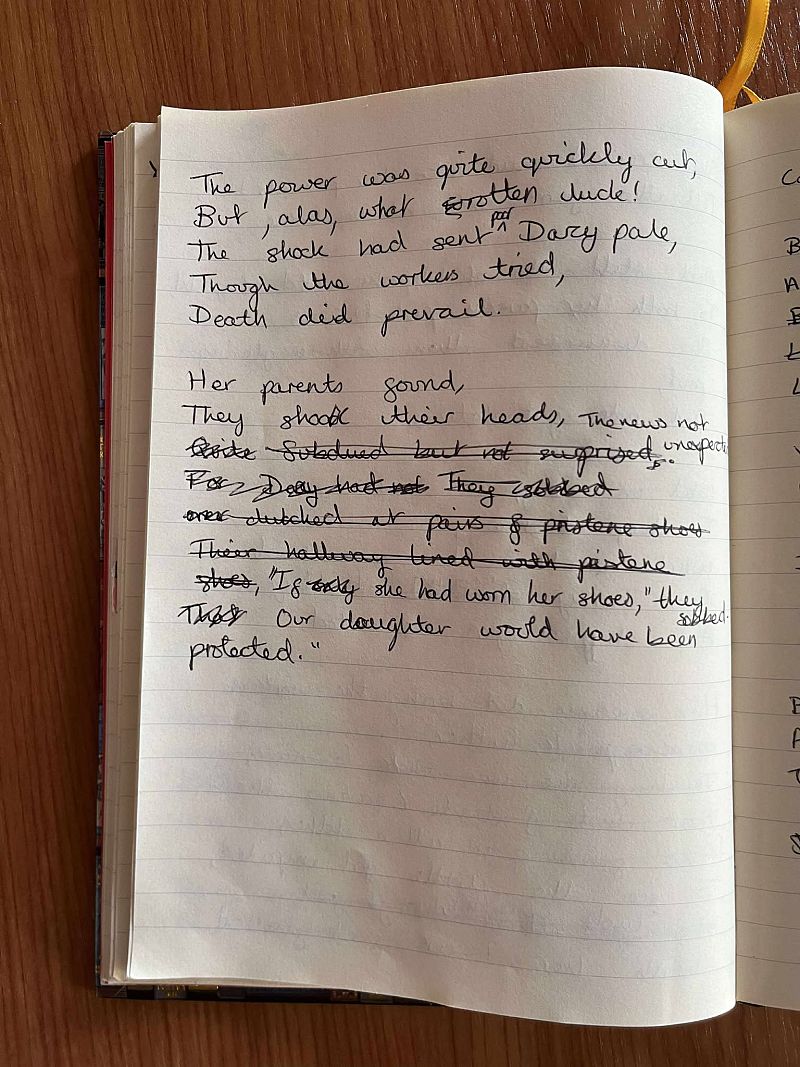 The power was quite quickly cut,
But, alas, what rotten dude!
The shock had sent poor Darcy pale,
Though the workers tried,
Death did prevail.
Her parents found,
They shook their heads, The news not
Quite subdued but not surprised, unexpected.
For Darcy had not They sobbed
over clutched at pairs of pristene shoes
Their hallway lined with pistene
shoes, "If only she had worn her shoes," they sobbed.
That Our daughter would have been
protected."